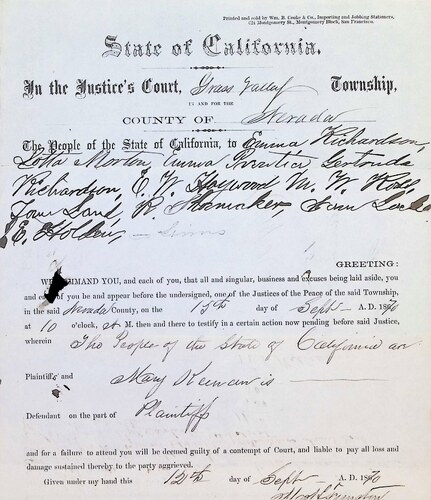 Printed and sold by Wm. B. Cooke & Co., Importing and Jobbing Stationers,
624 Montgomery St., Montgomery Block, San Francisco.
State of California.
In the Justice's Court, Grass Valley Township,
IN AND FOR THE
COUNTY OF Nevada
The People of the State of California, to Emma Richardson,
Lotta Morton, Emma Gertrude
Richardson, E. W. Haywood M. W. Ross,
Tom Land, R. Shoemaker, Sam Locke
E. Holden,
GREETING:
WE COMMAND YOU, and each of you, that all and singular, business and excuses being laid aside, you
and each of you be and appear before the undersigned, one of the Justices of the Peace of the said Township,
in the said Nevada County, on the 15th day of Sept A. D. 1870
at 10 o'clock, A M. then and there to testify in a certain action now pending before said Justice,
wherein The People of the State of California are
Plaintiffs and Mary Keenan is
Defendant on the part of Plaintiff
and for a failure to attend you will be deemed guilty of a contempt of Court, and liable to pay all loss and
damage sustained thereby to the party aggrieved.
Given under my hand this 12th day of Sept A. D. 1870